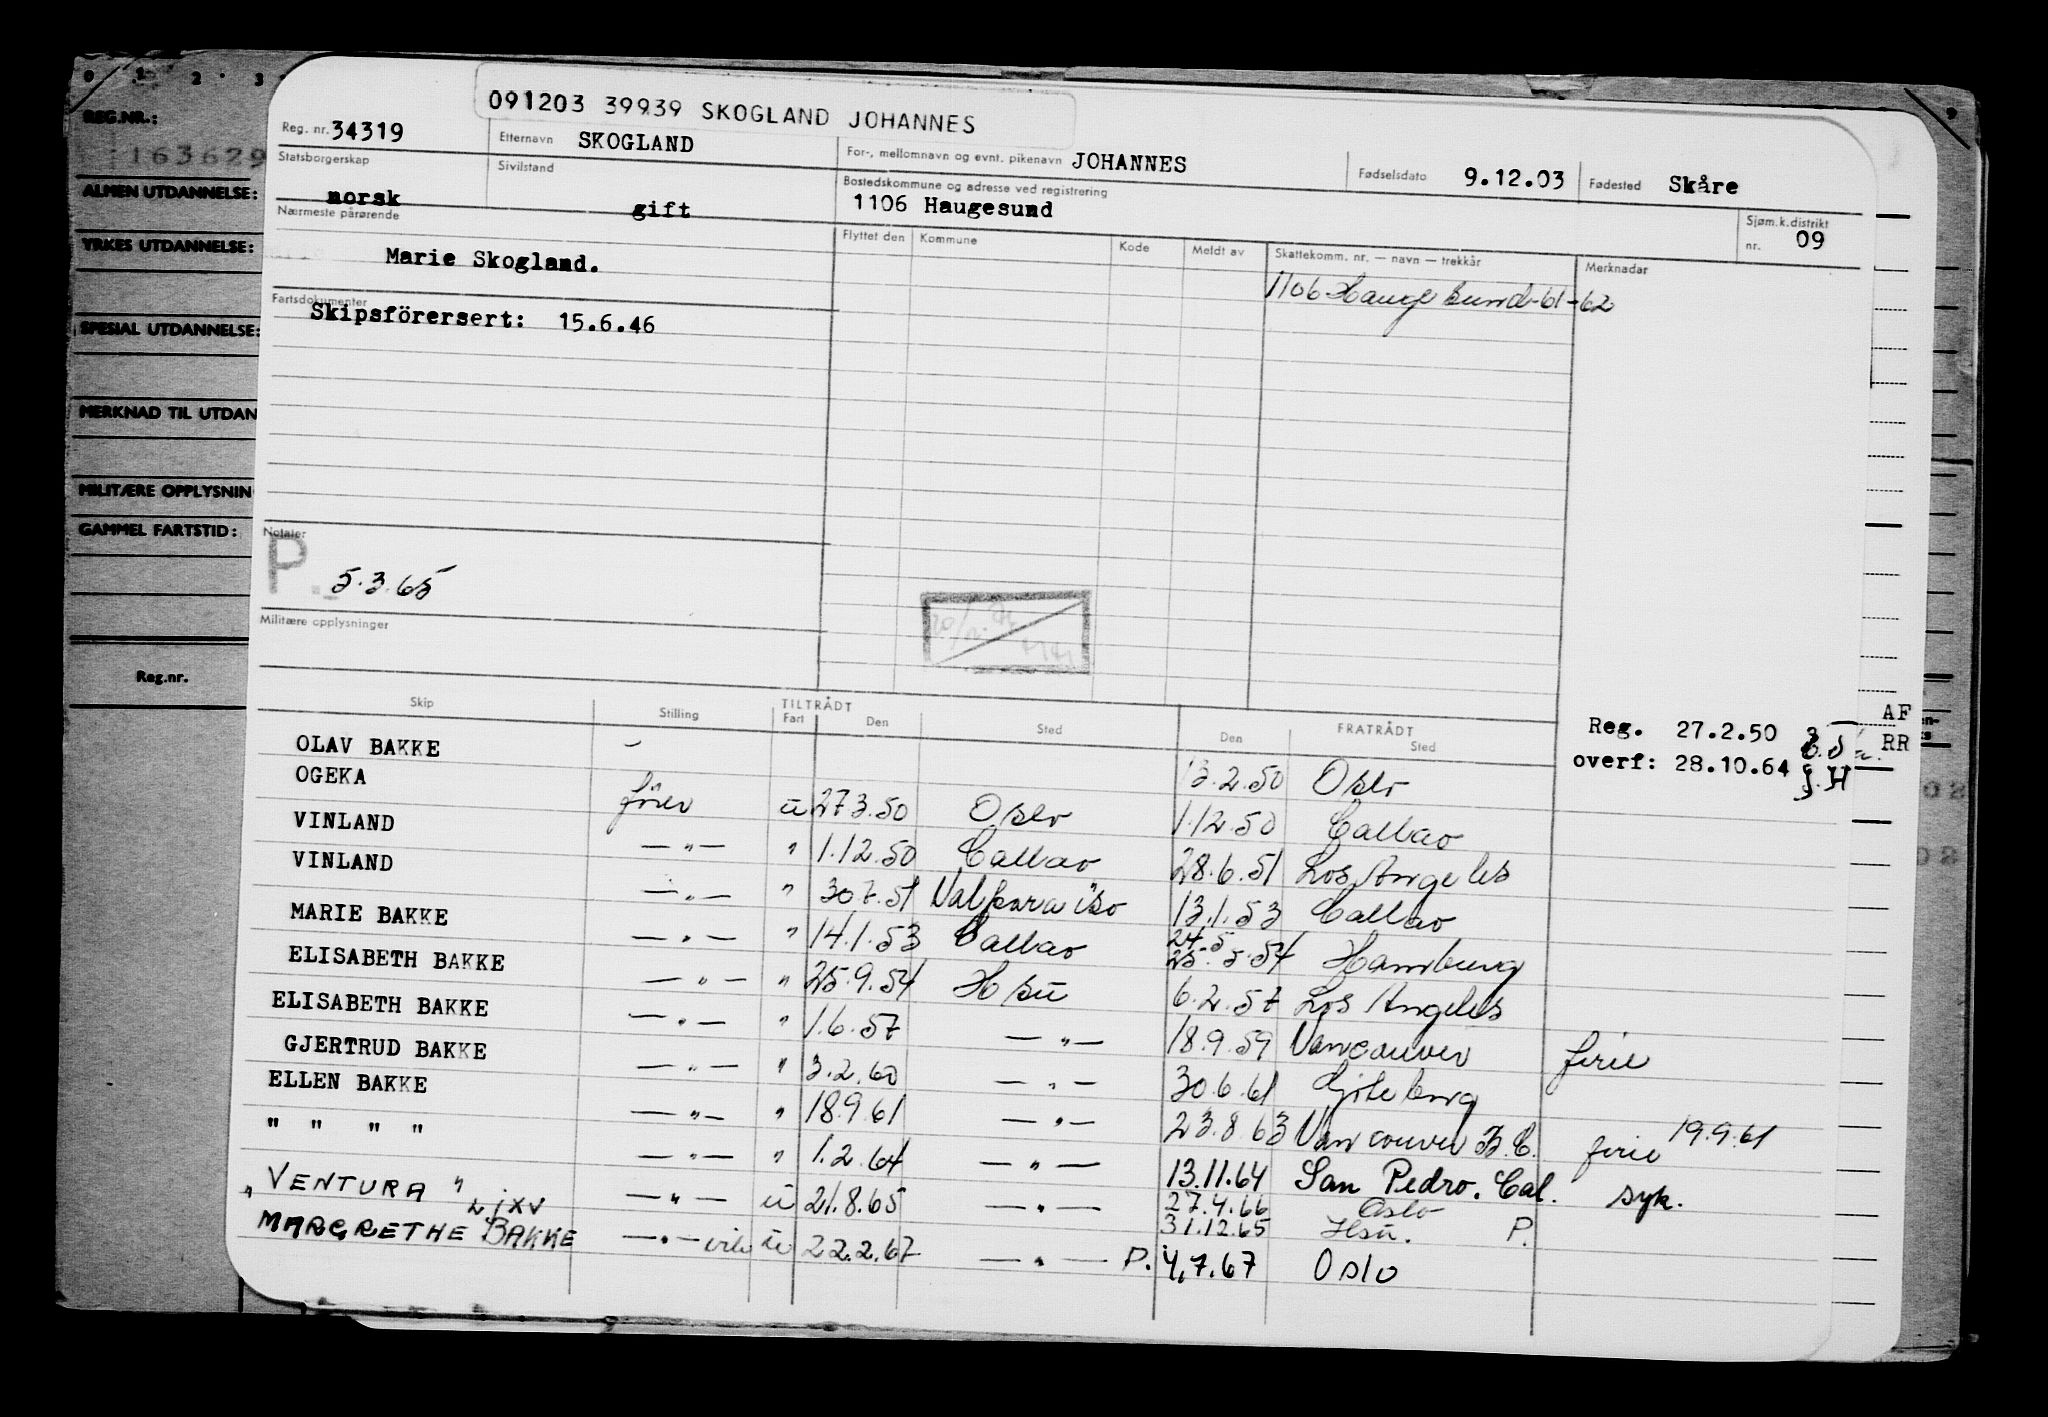 0 1 2 3
REG.NR.:
163629
ALMEN UTDANNELSE:
YRKES UTDANNELSE:
SPESIAL UTDANNELSE:
MERKNAD TIL UTDAN
MILITÆRE OPPLYSNIN
GAMMEL FARTSTID:
Reg.nr.
9
091203 39939 SKOGLAND JOHANNES
Reg. nr. 34319 Etternavn SKOGLAND For-, mellomnavn og evnt. pikenavn JOHANNES Fødselsdato 9.12.03 Fødested Skåre
Statsborgerskap norsk Sivilstand gift Bostedskommune og adresse ved registrering 1106 Haugesund Sjøm.k.distrikt nr. 09
Nærmeste pårørende Flyttet den Kommune Kode Meldt av Skattekomm. nr. — navn — trekkår Merknadar
Marie Skogland. 1106 Haugesund-61-62
Fartsdokumenter
Skipsförersert: 15.6.46
Notater
P. 5.3.65
Militære opplysninger
Skip Stilling TILTRÅDT Fart Den Sted FRATRÅDT Den Sted
Reg. 27.2.50
overf: 28.10.64 J.H
AF
RR
OLAV BAKKE - 13.2.50 Oslo
OGEKA förer u 27.3.50 Oslo 1.12.50 Callao
VINLAND —"— " 1.12.50 Callao 28.6.51 Los Angeles
VINLAND —"— " 30.7.51 Valparaiso 13.1.53 Callao
MARIE BAKKE —"— " 14.1.53 Callao 24.5 25.5.54 Hamburg
ELISABETH BAKKE —"— " 25.9.54 Hsu 6.2.57 Los Angeles
ELISABETH BAKKE —"— " 1.6.57 —"— 18.9.59 Vancouver ferie
GJERTRUD BAKKE —"— " 3.2.60 —"— 30.6.61 Göteborg
ELLEN BAKKE —"— " 18.9.61 —"— 23.8.63 Vancouver B.C. ferie 19.9.61
" " " " —"— " 1.2.64 —"— 13.11.64 San Pedro. Cal. syk.
"VENTURA" LJXV —"— u 21.8.65 —"— 27.4.66 Oslo
31.12.65 Hsu. P.
MARGRETHE BAKKE —"— u 22.2.67 —"— P. 4.7.67 Oslo